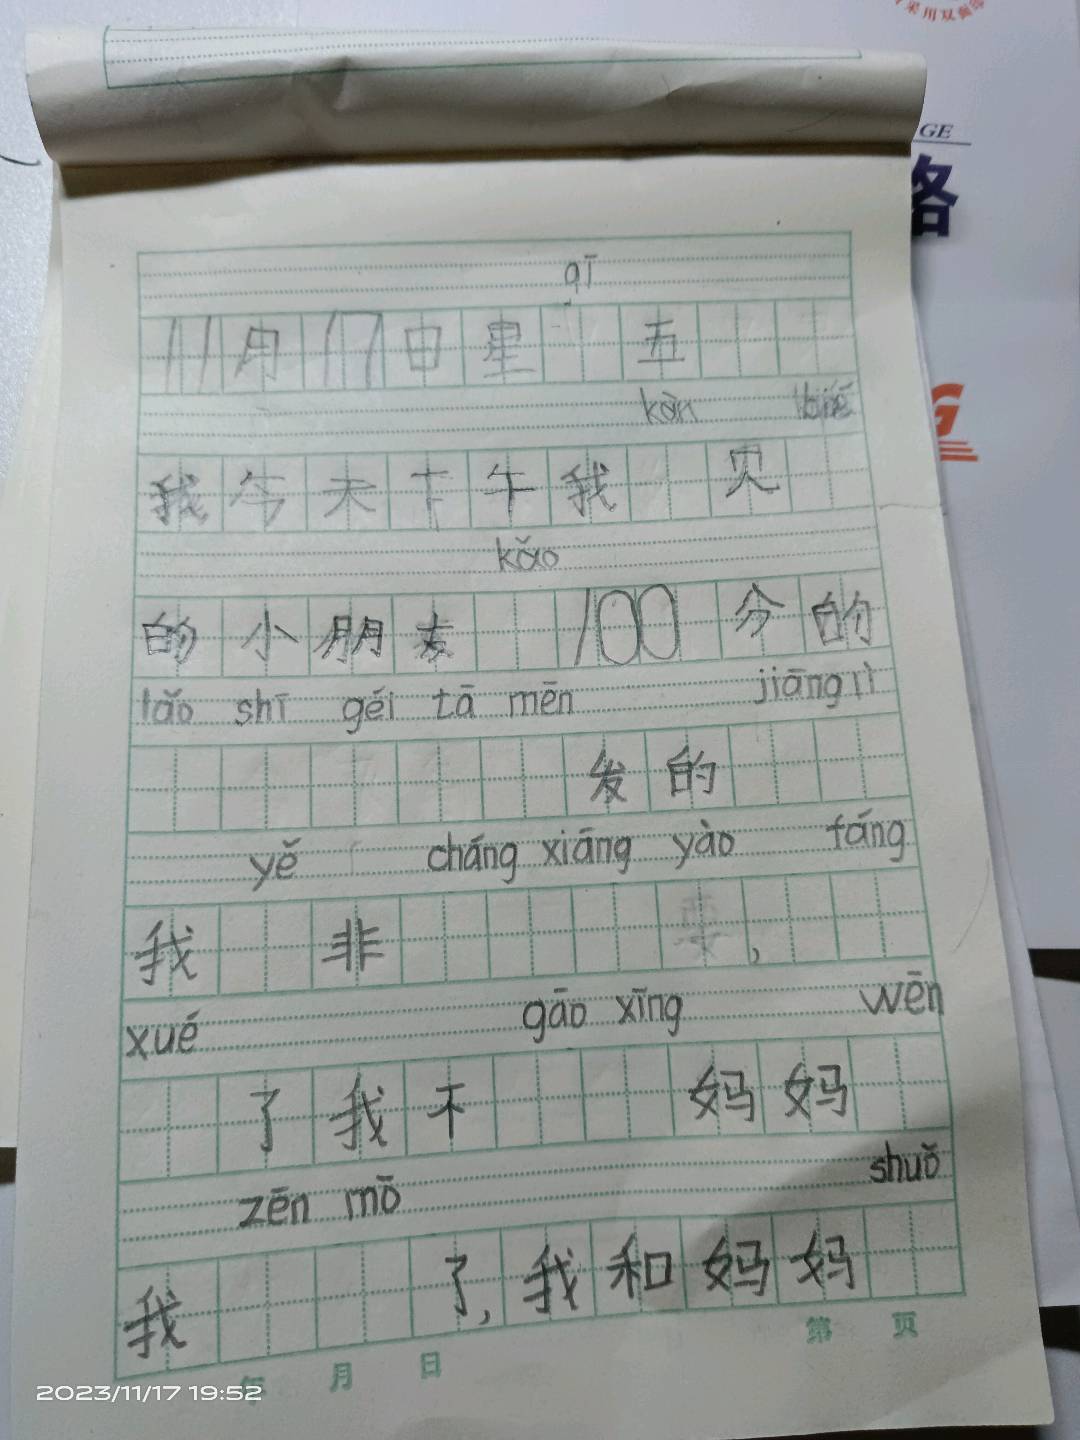 采用双面
GE
络
G
qī
11月17日星 五
kàn
我今天下午我 见
kǎo
的小朋友 100分的
lǎo shī géi tā mēn jiāng lì
发的
yě cháng xiāng yào fáng
我 非 要,
xué gāo xīng wēn
了我不 妈妈
zēn mō shuǒ
我 了,我和妈妈
年 月 日 第 页
2023/11/17 19:52